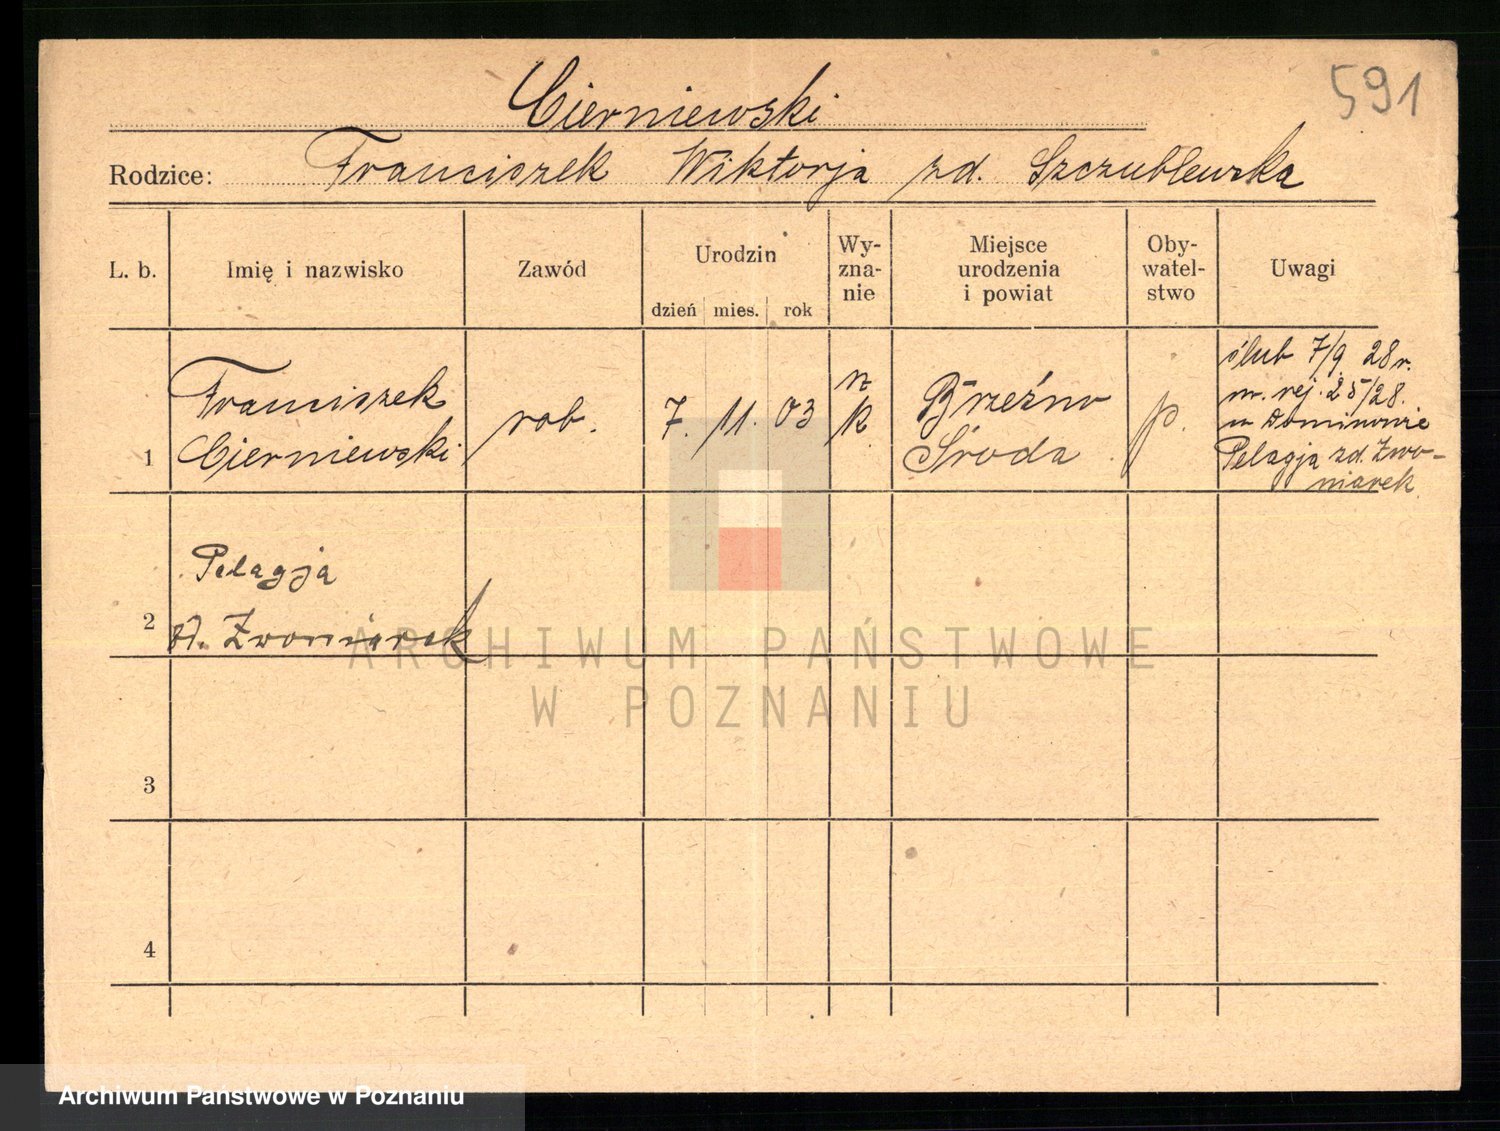 591
Cierniewski
Rodzice: Franciszek Wiktorja zd. Szczublewska
L. b.
Imię i nazwisko
Zawód
Urodzin
dzień mies. rok
Wy-
zna-
nie
Miejsce
urodzenia
i powiat
Oby-
watel-
stwo
Uwagi
1
Franciszek
Cierniewski
rob.
7. 11. 03
rz
k
Brzeźno
Środa
p.
ślub 7/9. 28 r.
nr. rej. 25/28.
w Dominowie
Pelagja zd. Zwo-
niarek
2
Pelagja
zd. Zwoniarek
3
4
ARCHIWUM PAŃSTWOWE
W POZNANIU
Archiwum Państwowe w Poznaniu